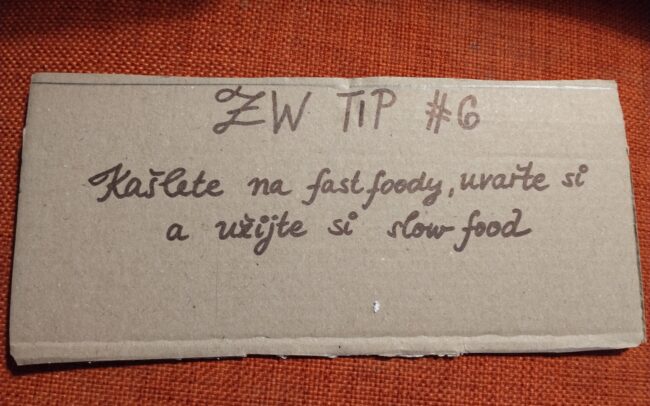 ZW TIP #6
Kašlete na fastfoody, uvařte si
a užijte si slow food